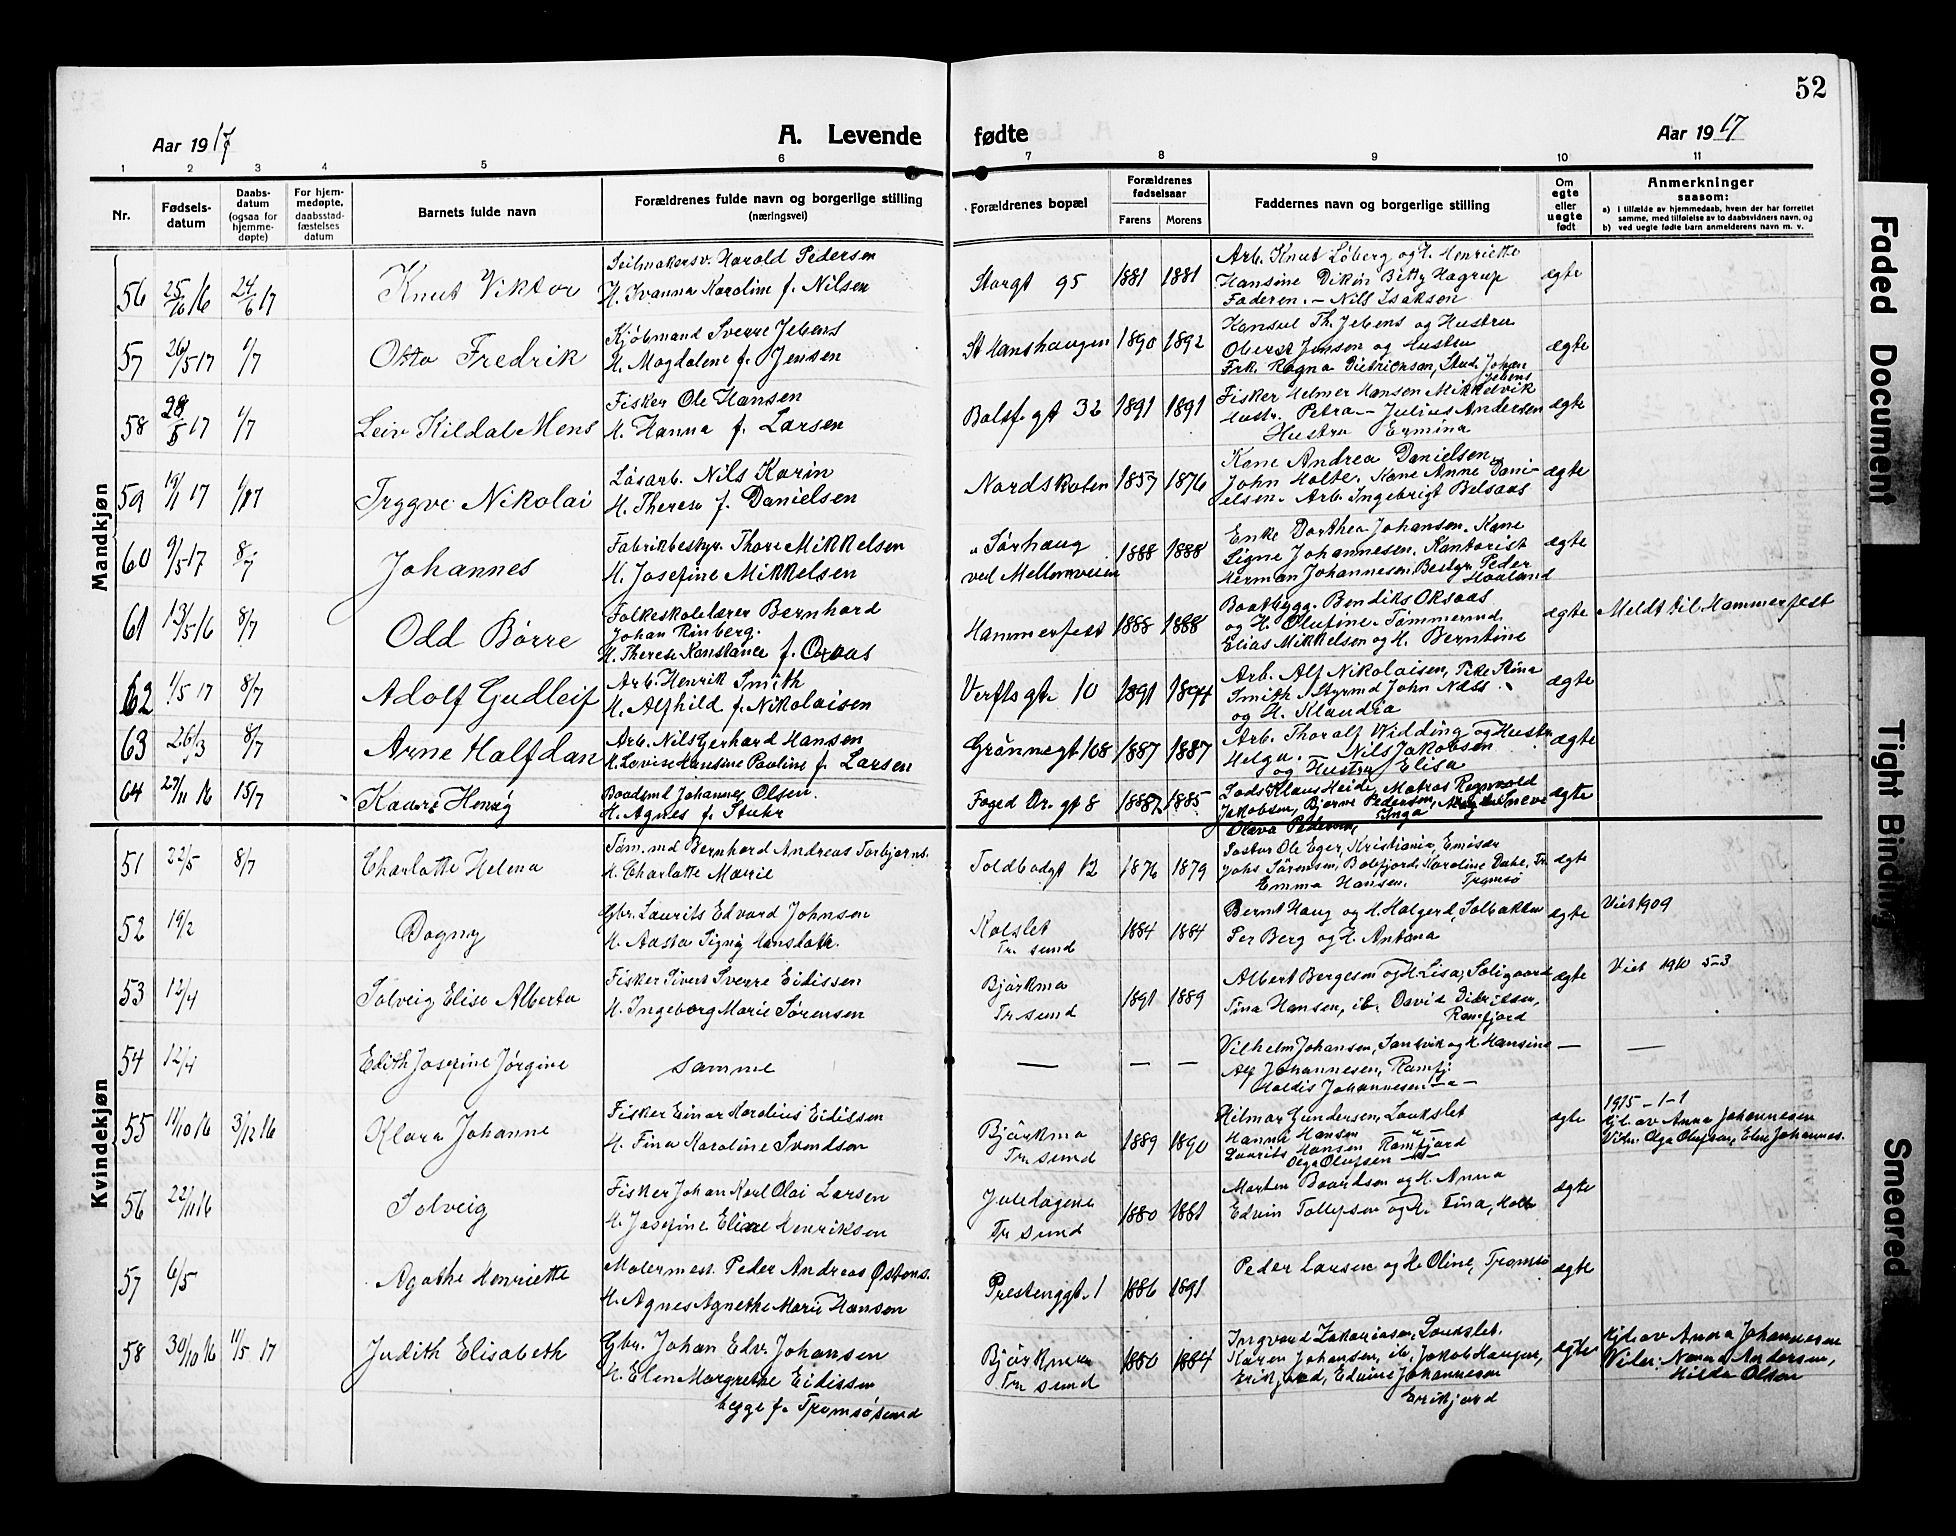 52
Aar 1917
A. Levende fødte
Aar 1917
1 2 3 4 5 6 7 8 9 10 11
Nr.
Fødsels-
datum
Daabs-
datum
(ogsaa for
hjemme-
døpte)
For hjem-
medøpte,
daabsstad-
fæstelses
datum
Barnets fulde navn
Forældrenes fulde navn og borgerlige stilling
(næringsvei)
Forældrenes bopæl
Forældrenes
fødselsaar
Farens Morens
Faddernes navn og borgerlige stilling
Om
egte
eller
uegte
født
Anmerkninger
saasom:
a) I tilfælde av hjemmedaab, hvem der har forrettet
samme, med tilføielse av to daabsvidners navn, og
b) ved uegte fødte barn anmelderens navn m. v.
Mandkjøn
56 25/10 16 24/6 17 Knut Viktor
Seilmakersv. Harald Pedersen
H. Ivanna Karoline f. Nilsen
Storgt 95 1881 1881
Arb. Knut Løberg og H. Henriette
Hansine Betty Hagrup
Faderen. – Nils Isaksen
ægte
57 26/5 17 1/7 Otto Fredrik
Kjøbmand Sverre Jebens
H. Magdalene f. Jensen
St Hanshaugen 1890 1892
Konsul Th. Jebens og Hustru
Oberst Jensen og Hustru
Frk. Ragna Diedrichsen, Stud. Johan
Jebens
ægte
58 28/5 17 1/7 Leiv Kildal Mens
Fisker Ole Hansen
H. Hanna f. Larsen
Balsf gt 32 1891 1891
Fisker Helmer Hansen Mikkelvik
Hustr. Petra – Julius Andersen
Hustru Ermina
ægte
59 19/1 17 1/7 17 Tryggve Nikolai
Løsarb. Nils Karin
H. Therese f. Danielsen
Nordskoten 1857 1876
Kone Andrea Danielsen,
John Holte. Kone Anne Dani-
elsen. Arb. Ingebrigt Belsaas
ægte
60 9/5 17 8/7 Johannes
Fabrikbestyr. Thore Mikkelsen
H. Josefine Mikkelsen
Sørhaug
ved Mellemveien 1888 1888
Enke Dorthea Johansen. Kone
Signe Johannesen. Kontorist
Herman Johannesen. Bestyr. Peder
Haaland
ægte
61 13/5 16 8/7 Odd Børre
Folkeskolelærer Bernhard
Johan Rinberg.
H. Therese Konstance f. Oxaas
Hammerfest 1888 1888
Baatbygg. Bendiks Oksaas
og H. Olufine. Tømmermd.
Elias Mikkelsen og H. Berntine
ægte
Meldt til Hammerfest
62 1/5 17 8/7 Adolf Gudleif
Arb. Henrik Smith
H. Alfhild f. Nikolaisen
Verftsgt 10 1891 1894
Arb. Alf Nikolaisen, Pike Stina
Smith, Styrmd John Næbs.
og H. Klaudia
ægte
63 26/3 8/7 Arne Halfdan
Arb. Nils Gerhard Hansen
H. Lovise Hansine Pauline f. Larsen
Grønnegt 108 1887 1887
Arb. Thoralf Widding og Hustr.
Helga. Nils Jakobsen
og Hustru Elisa
ægte
64 27/11 16 15/7 Kaare Henrig
Baadsmd Johannes Olsen.
H. Agnes f. Stuhr
Foged Dr. gt 8 1885
Lods Klaus Heide, Matros Regnvald
Jakobsen, Bjarne Pedersen, Sneve
Olava Pedersen, Inga
ægte
Kvindekjøn
51 22/5 8/7 Charlotte Helena
Tøm.md Bernhard Andreas Torbjørns.
H. Charlotte Marie
Toldbodgt 12 1876 1879
Pastor Ole Eger, Kristiania, Emisær
Johs. Sørensen, Balsfjord, Karoline Dahl, Tr.
Emma Hansen, Tromsø
ægte
52 19/2 Dagny
Gbr. Laurits Edvard Johnsen
H. Aasta Signy Hansdatt.
Tr. sund 1884 1884
Bernt Haug og H. Halgerd, Solbakken
Per Berg og H. Antona
ægte
Viet 1909
53 12/4 Solveig Elise Alberta
Fisker Sivert Sverre Eidissen
H. Ingeborg Marie Sørensen
Bjørkma
Tr. sund 1891 1889
Albert Bergesen og H. Lisa, Soligaard
Tina Hansen, ib, David Didriksen,
Ramfjord
ægte
Viet 1910 5-3
54 12/4 Edith Josefine Jørgine
Samme
— — —
Vilhelm Johansen, Sandvik og H. Hansine
Alf Johannesen, Ramfj.
Haldis Johannesen —"—
— —
55 11/10 16 3/12 16 Klara Johanne
Fisker Einar Karolius Eidissen
H. Fina Karoline Svendsen
Bjørkma
Tr. sund 1889 1890
Hilmar Gundersen, Laukslet
Hanna Hansen —"—
Laurits Hansen Ramfjord
Olga Olufsen —"—
ægte
1915 – 1 – 1
Hj.d. av Anna Johannesen
Vidn. Olga Olufsen, Eline Johannes.
56 22/11 16 Solveig
Fisker Johan Karl Olai Larsen
H. Josefine Eline Henriksen
Tr. sund 1880 1881
Morten Baardsen og H. Anna
Edvin Tollefsen og H. Tina, Holt
ægte
57 6/5 Agathe Henriette
Malermest. Peder Andreas Østens.
H. Agnes Agnethe Marie Hansen
Prestenggt. 1 1886 1891
Peder Larsen og H. Oline, Tromsø
ægte
58 30/10 16 11/5 17 Judith Elisabeth
Gbr. Johan Edv. Johansen
H. Elen Margrethe Eidissen
begge f. Tromsøsund
Bjørkmo
Tr. sund 1880 1884
Ingvard Zakariasen, Laukslet.
Karen Johansen, ib, Jakob Haugen,
Erikfjord, Edvine Johannesen
Erikfjord
ægte
Hjd. av Anna Johannesen
Vidn. Nanna Andersen,
Hilda Olsen
Faded Document
Tight Binding
Smeared